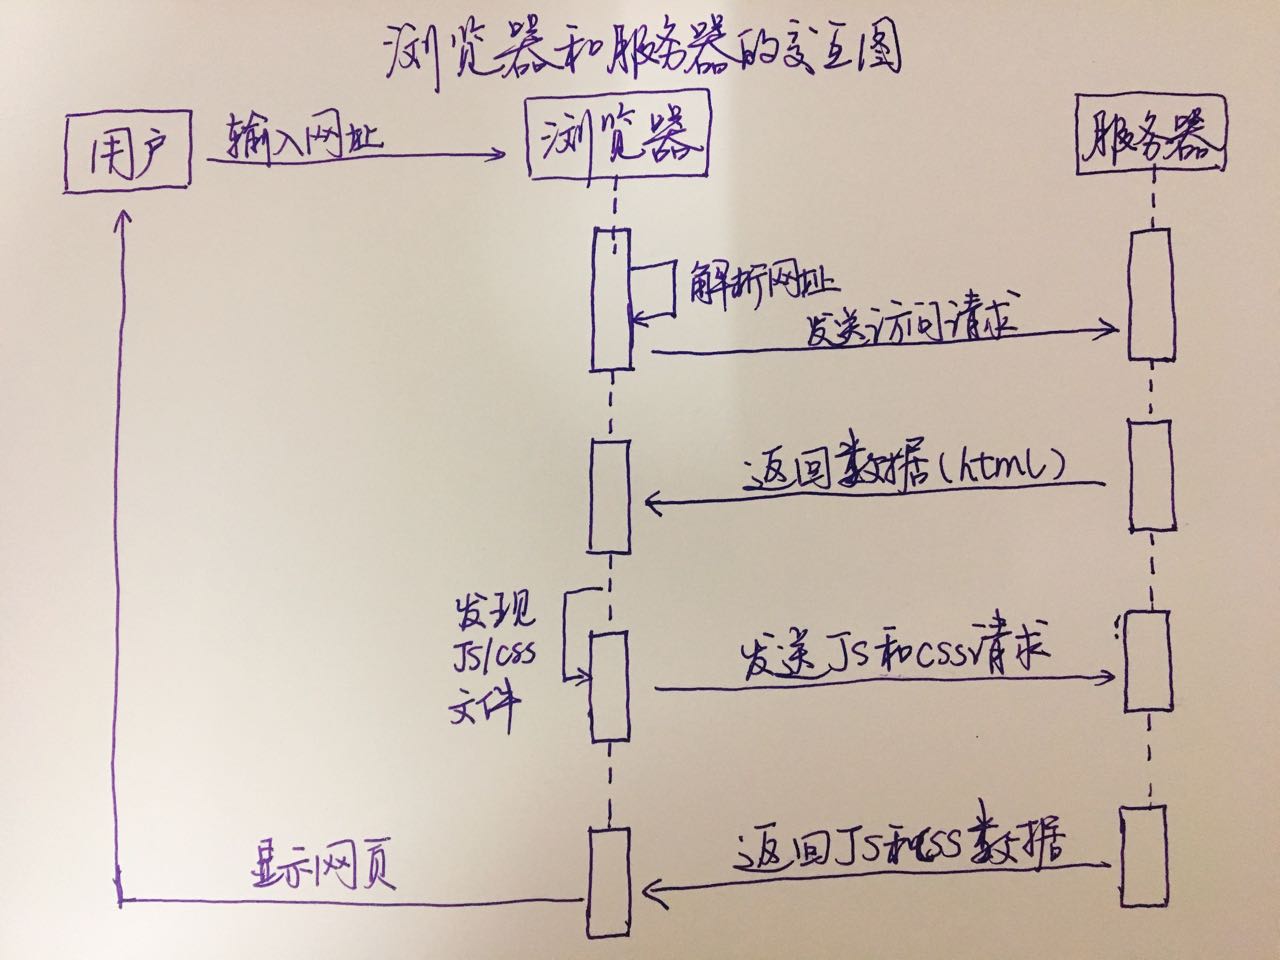 浏览器和服务器的交互图
用户
输入网址
浏览器
服务器
解析网址
发送访问请求
返回数据(html)
发现
JS/CSS
文件
发送JS和CSS请求
返回JS和CSS数据
显示网页